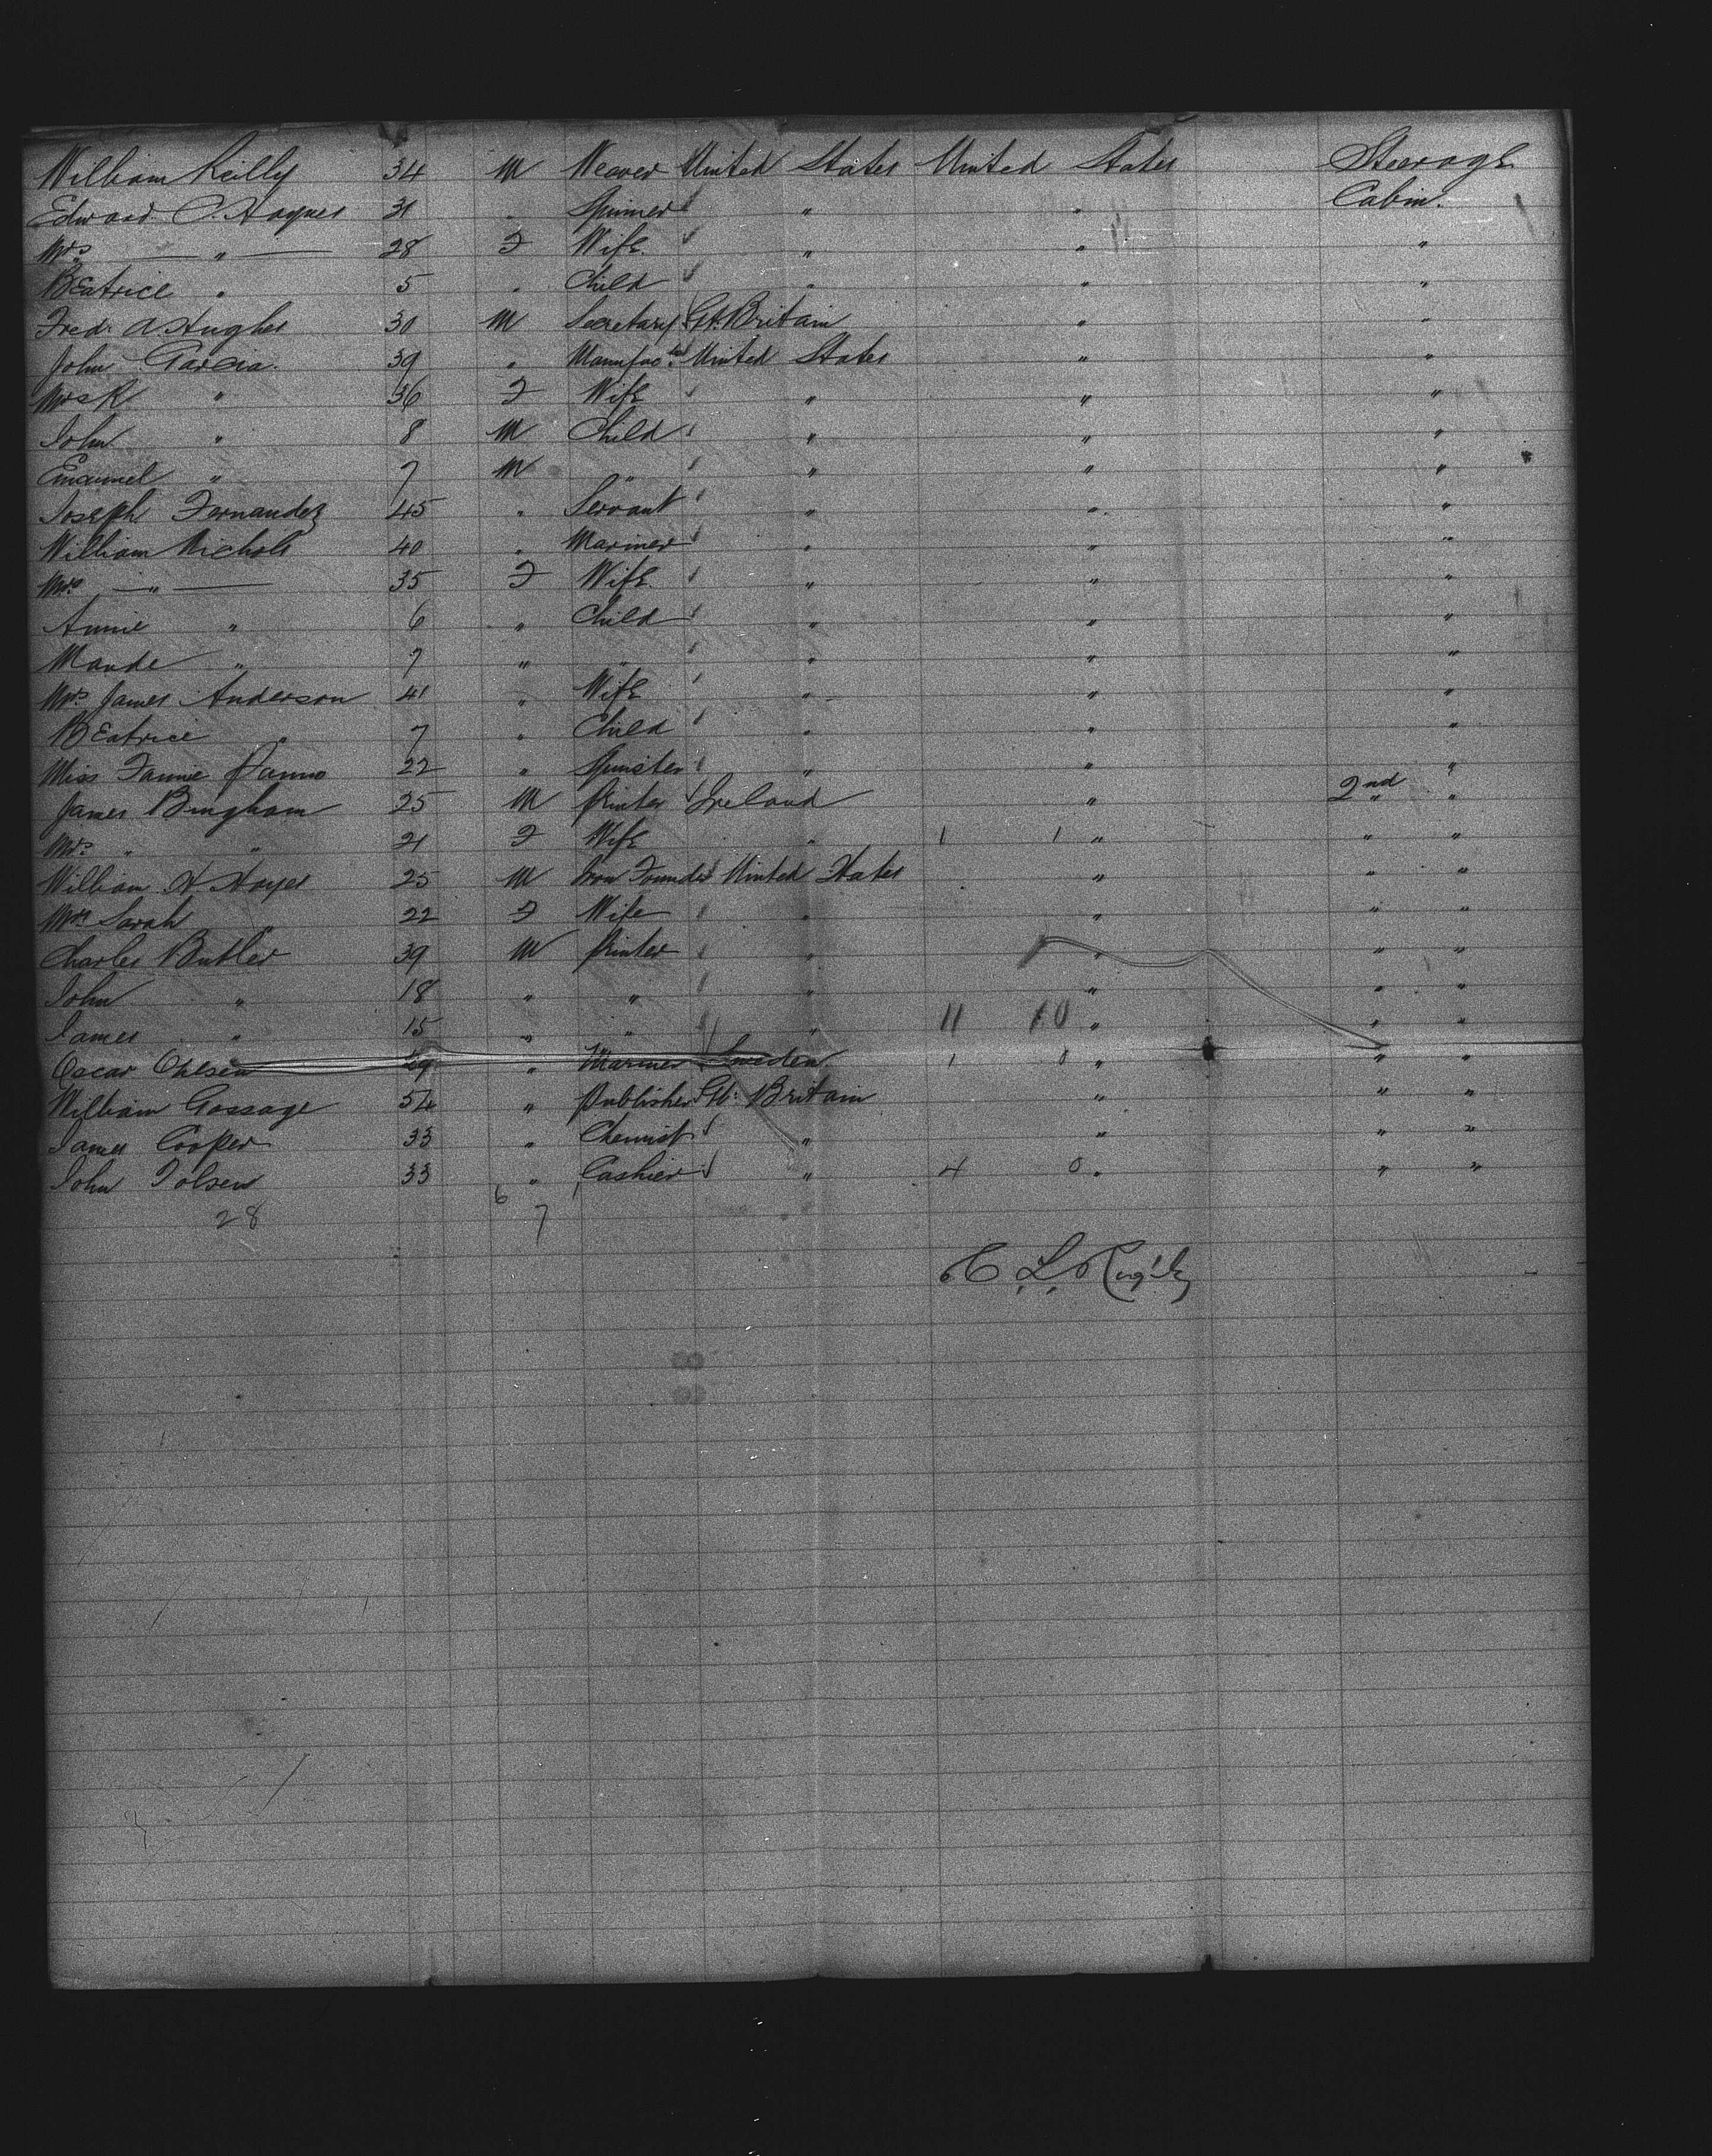 William Reilly 34 M Weaver United States United States Steerage
Edward C. Haynes 31 " Spinner " " Cabin.
Mrs. — " — 28 F Wife. " " "
Beatrice " 5 " Child " " "
Fred. A Hughes 30 M Secretary Gt. Britain " "
John Garcia. 39 " Manufac United States " "
Mrs R " 36 F Wife " " "
John " 8 M Child " " "
Emanuel " 7 M " " " "
Joseph Fernandez 45 " Servant " " "
William Nichols 40 " Mariner " " "
Mrs. — " — 35 F Wife. " " "
Annie " 6 " Child " " "
Maude " 7 " " " " "
Mrs. James Anderson 41 " Wife " " "
Beatrice " 7 " Child " " "
Miss Fannie 22 " Spinster " " "
James Bingham 25 M Printer Ireland " 2nd "
Mrs. " " 21 F Wife " 1 1 " " "
William H Hayes 25 M Iron Founder United States " " "
Mrs Sarah " 22 F Wife " " " "
Charles Butler 39 M Printer " " " "
John " 18 " " " " " "
James " 15 " " " 11 10 " " "
Oscar Ohlsen 29 " Mariner Sweden. 1 0 " " "
William Gossage 54 " Publisher Gt. Britain " " "
James Cooper 33 " Chemist " " " "
John Tolsen 33 " Cashier " 4 0 " " "
28 6 7